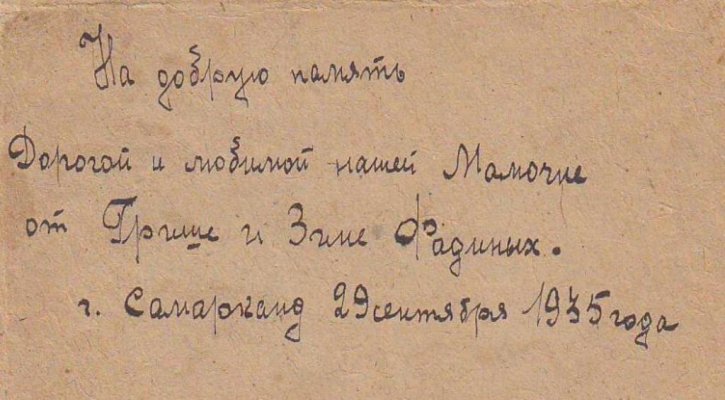 На добрую память
Дорогой и любимой нашей Мамочке
от Грише и Зине Фадиных.
г. Самарканд 29 сентября 1935 года